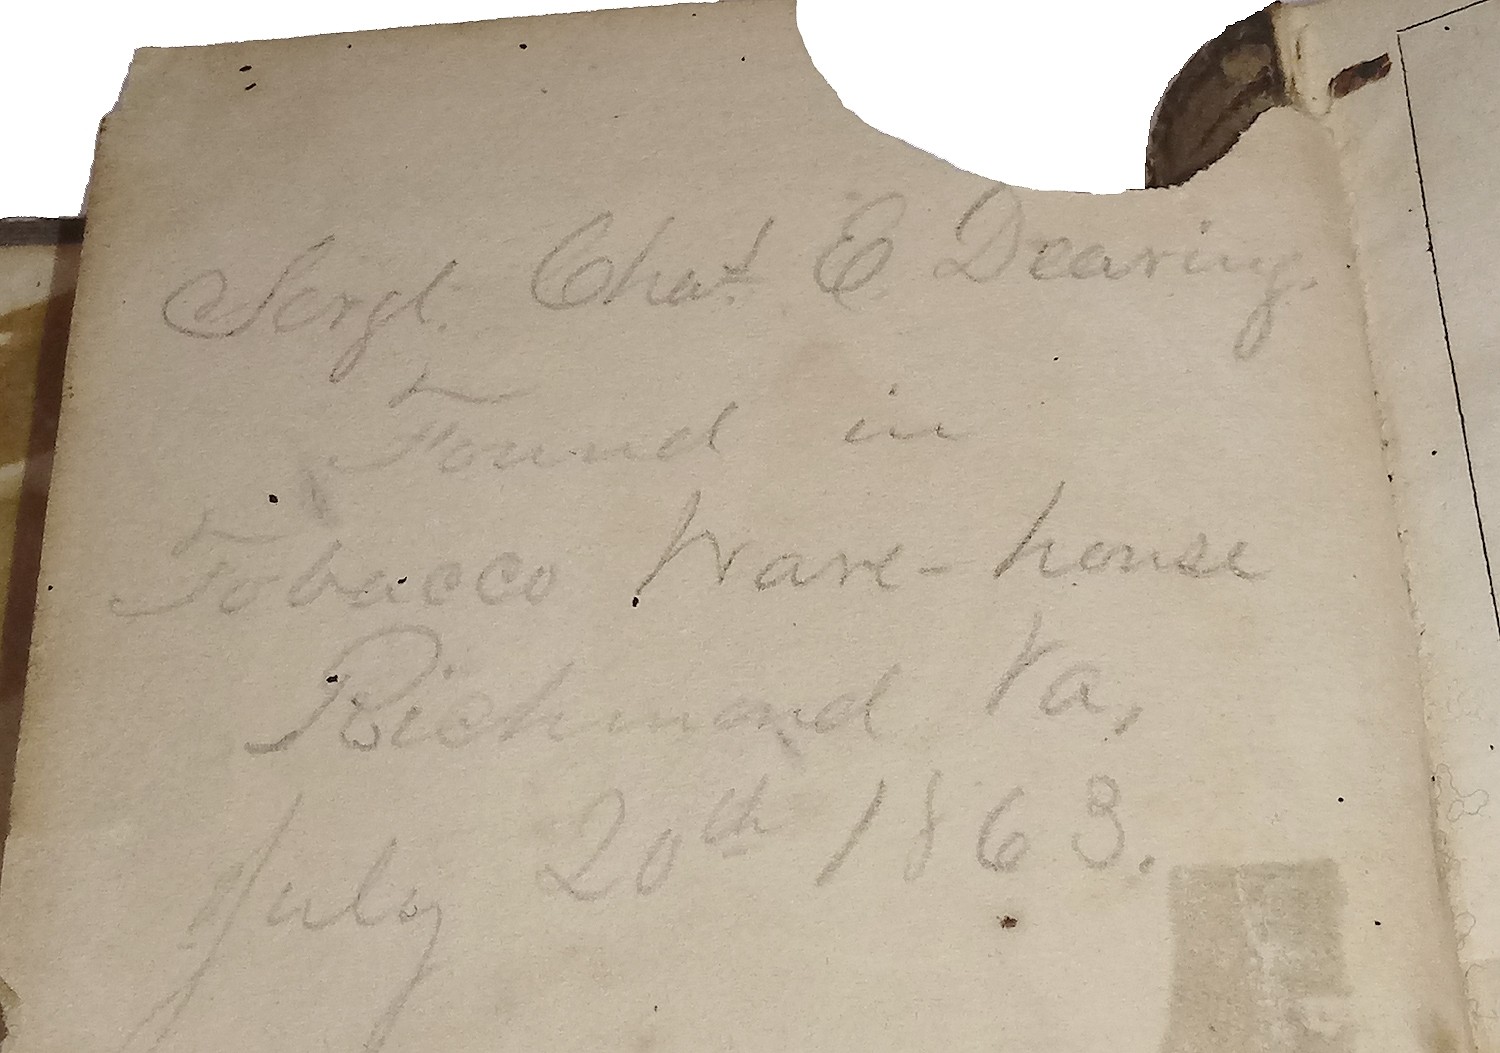 Sergt. Chas. E. Dearing.
Found in
Tobacco Ware-house
Richmond Va,
July 20th 1863.